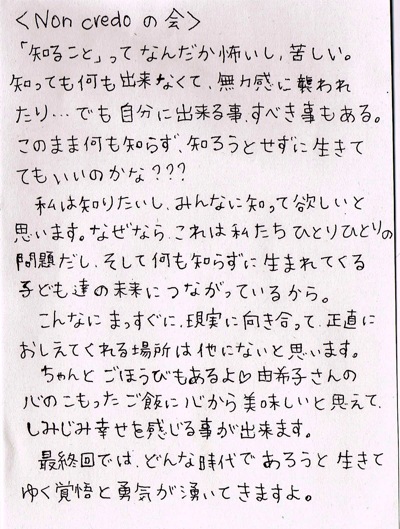 〈Non credo の会〉
「知ること」って なんだか怖いし、苦しい。
知っても何も出来なくて、無力感に襲われ
たり…でも自分に出来る事、すべき事もある。
このまま何も知らず、知ろうとせずに生きて
てもいいのかな???
私は知りたいし、みんなに知って欲しいと
思います。なぜなら、これは私たちひとりひとりの
問題だし、そして何も知らずに生まれてくる
子ども達の未来につながっているから。
こんなにまっすぐに、現実に向き合って、正直に
おしえてくれる場所は他にないと思います。
ちゃんとごほうびもあるよ♡由希子さんの
心のこもったご飯に心から美味しいと思えて、
しみじみ幸せを感じる事が出来ます。
最終回では、どんな時代であろうと生きて
ゆく覚悟と勇気が湧いてきますよ。